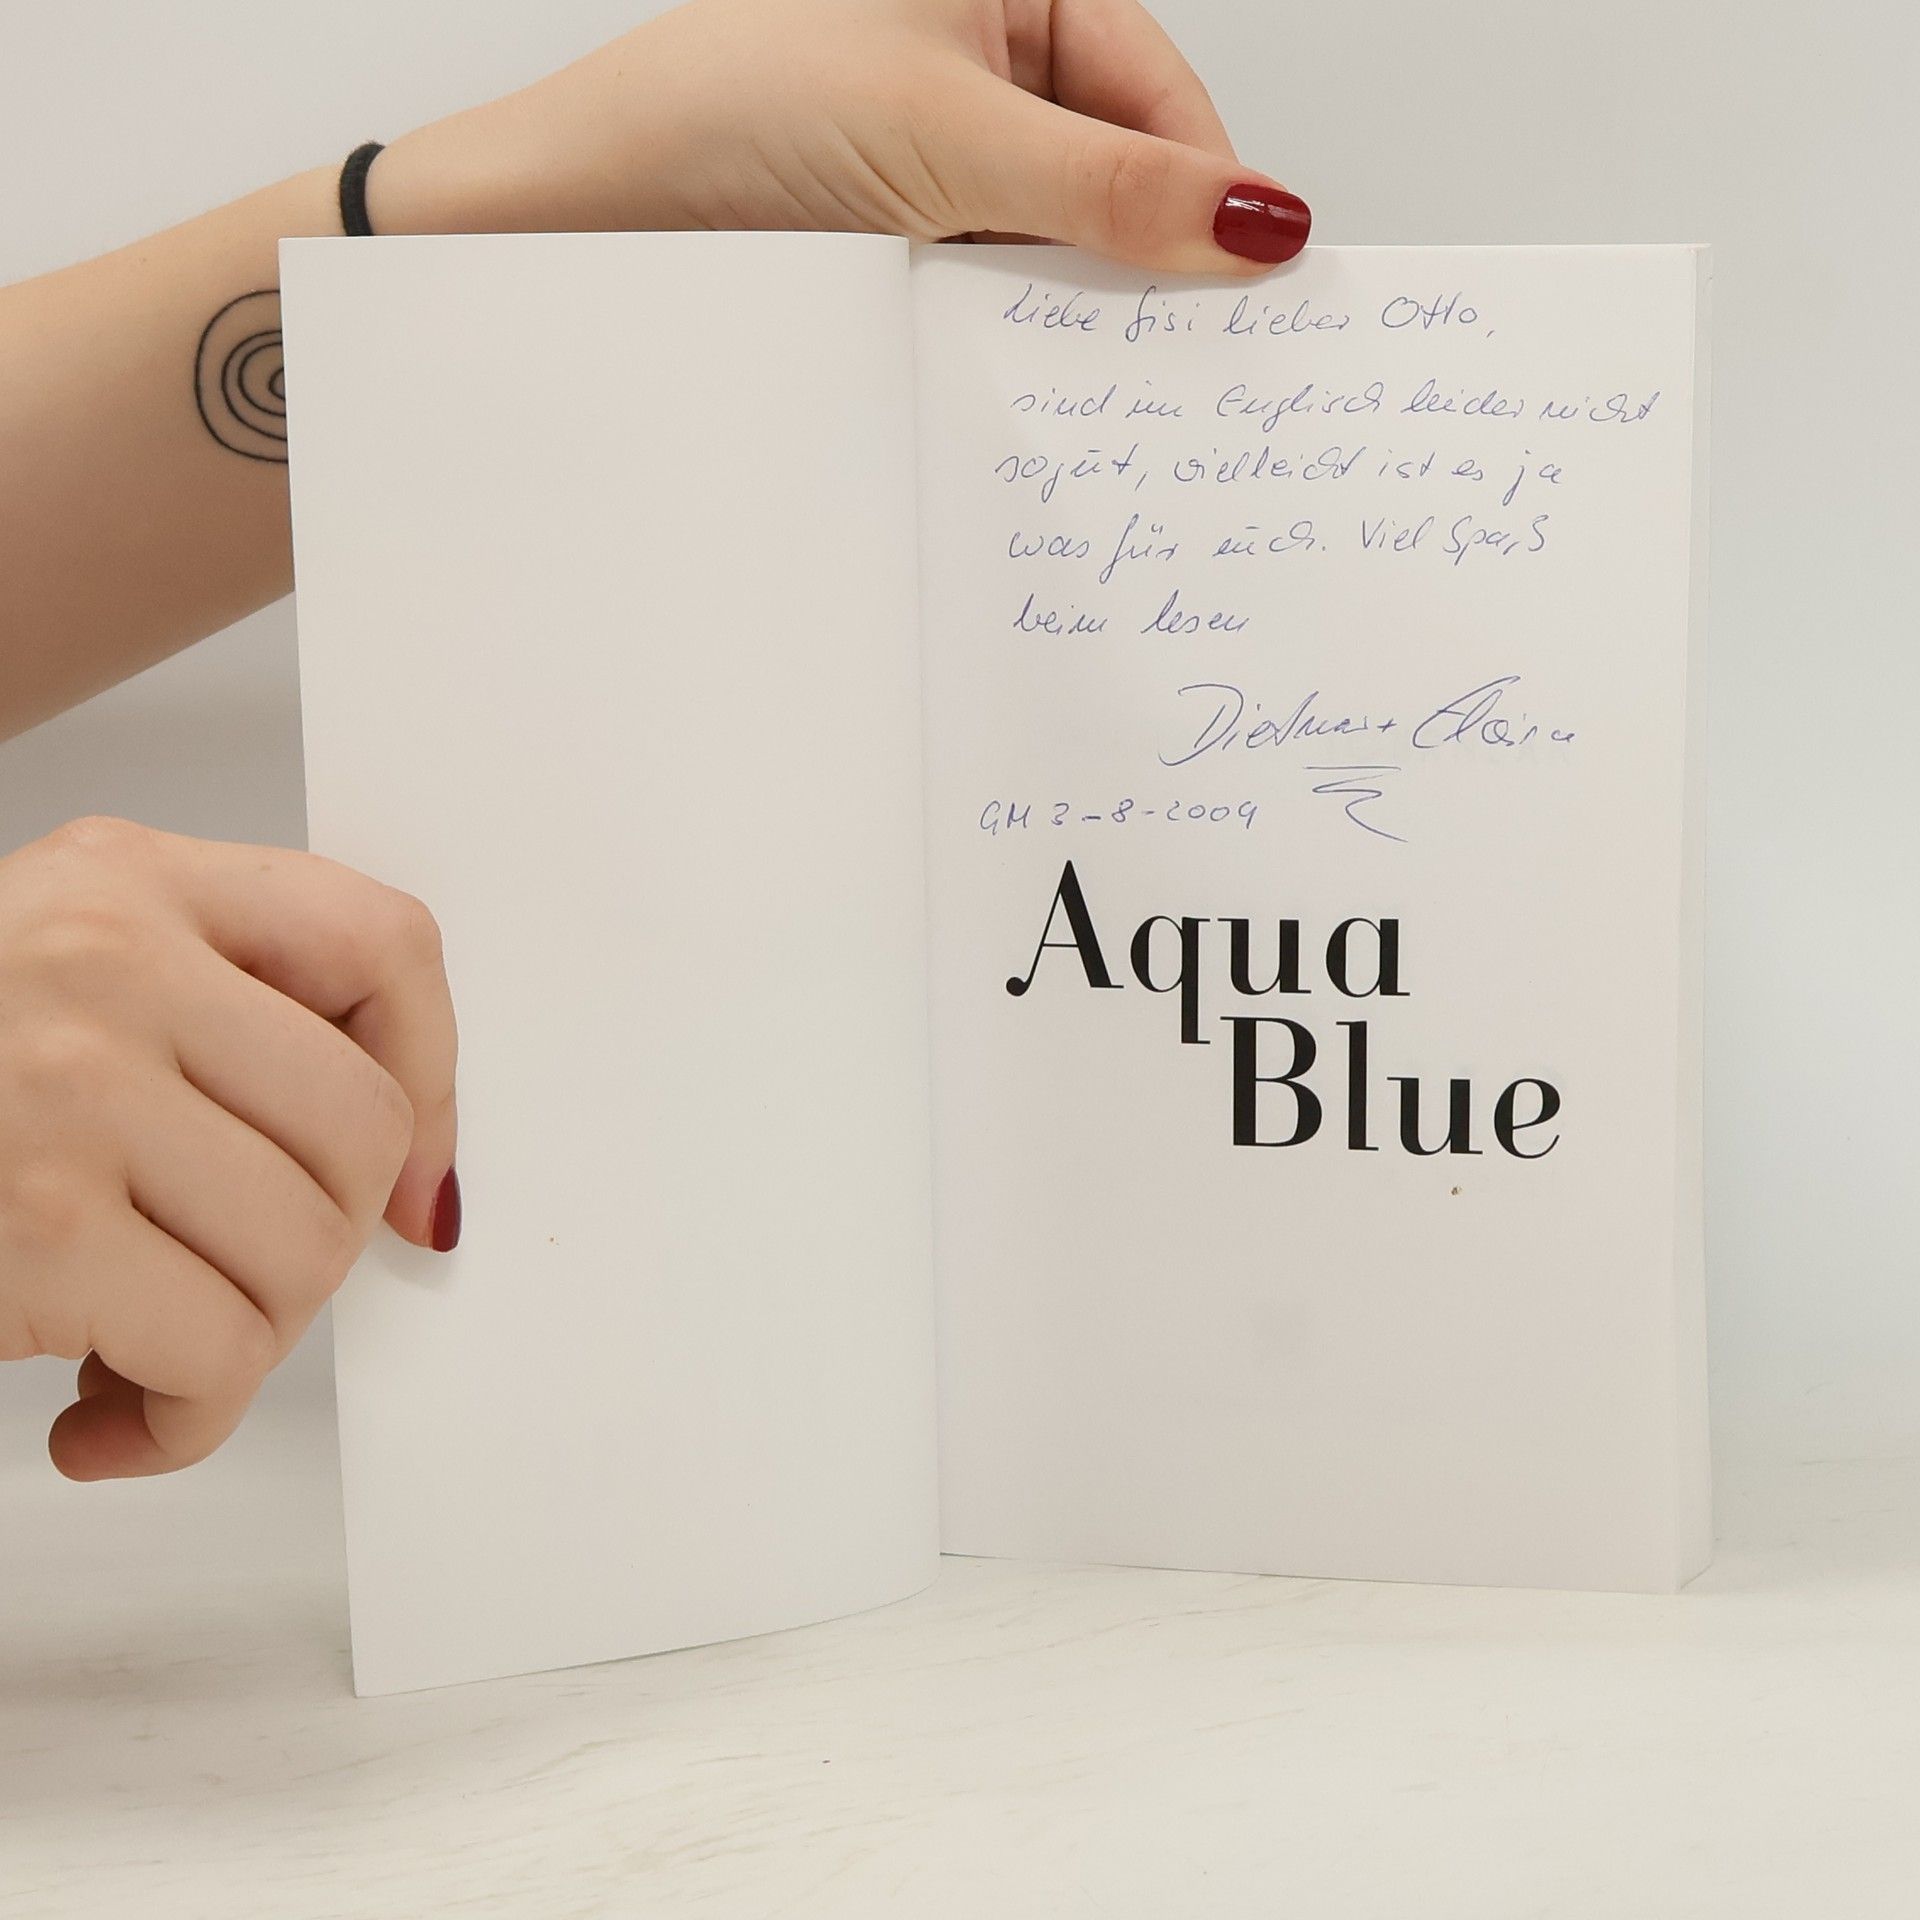 Liebe Sisi lieber Otto,
sind im Englisch leider nicht
sogut, vielleicht ist es ja
was für euch. Viel Spaß
beim lesen
Dietmar +
GM 3-8-2009
Aqua
Blue